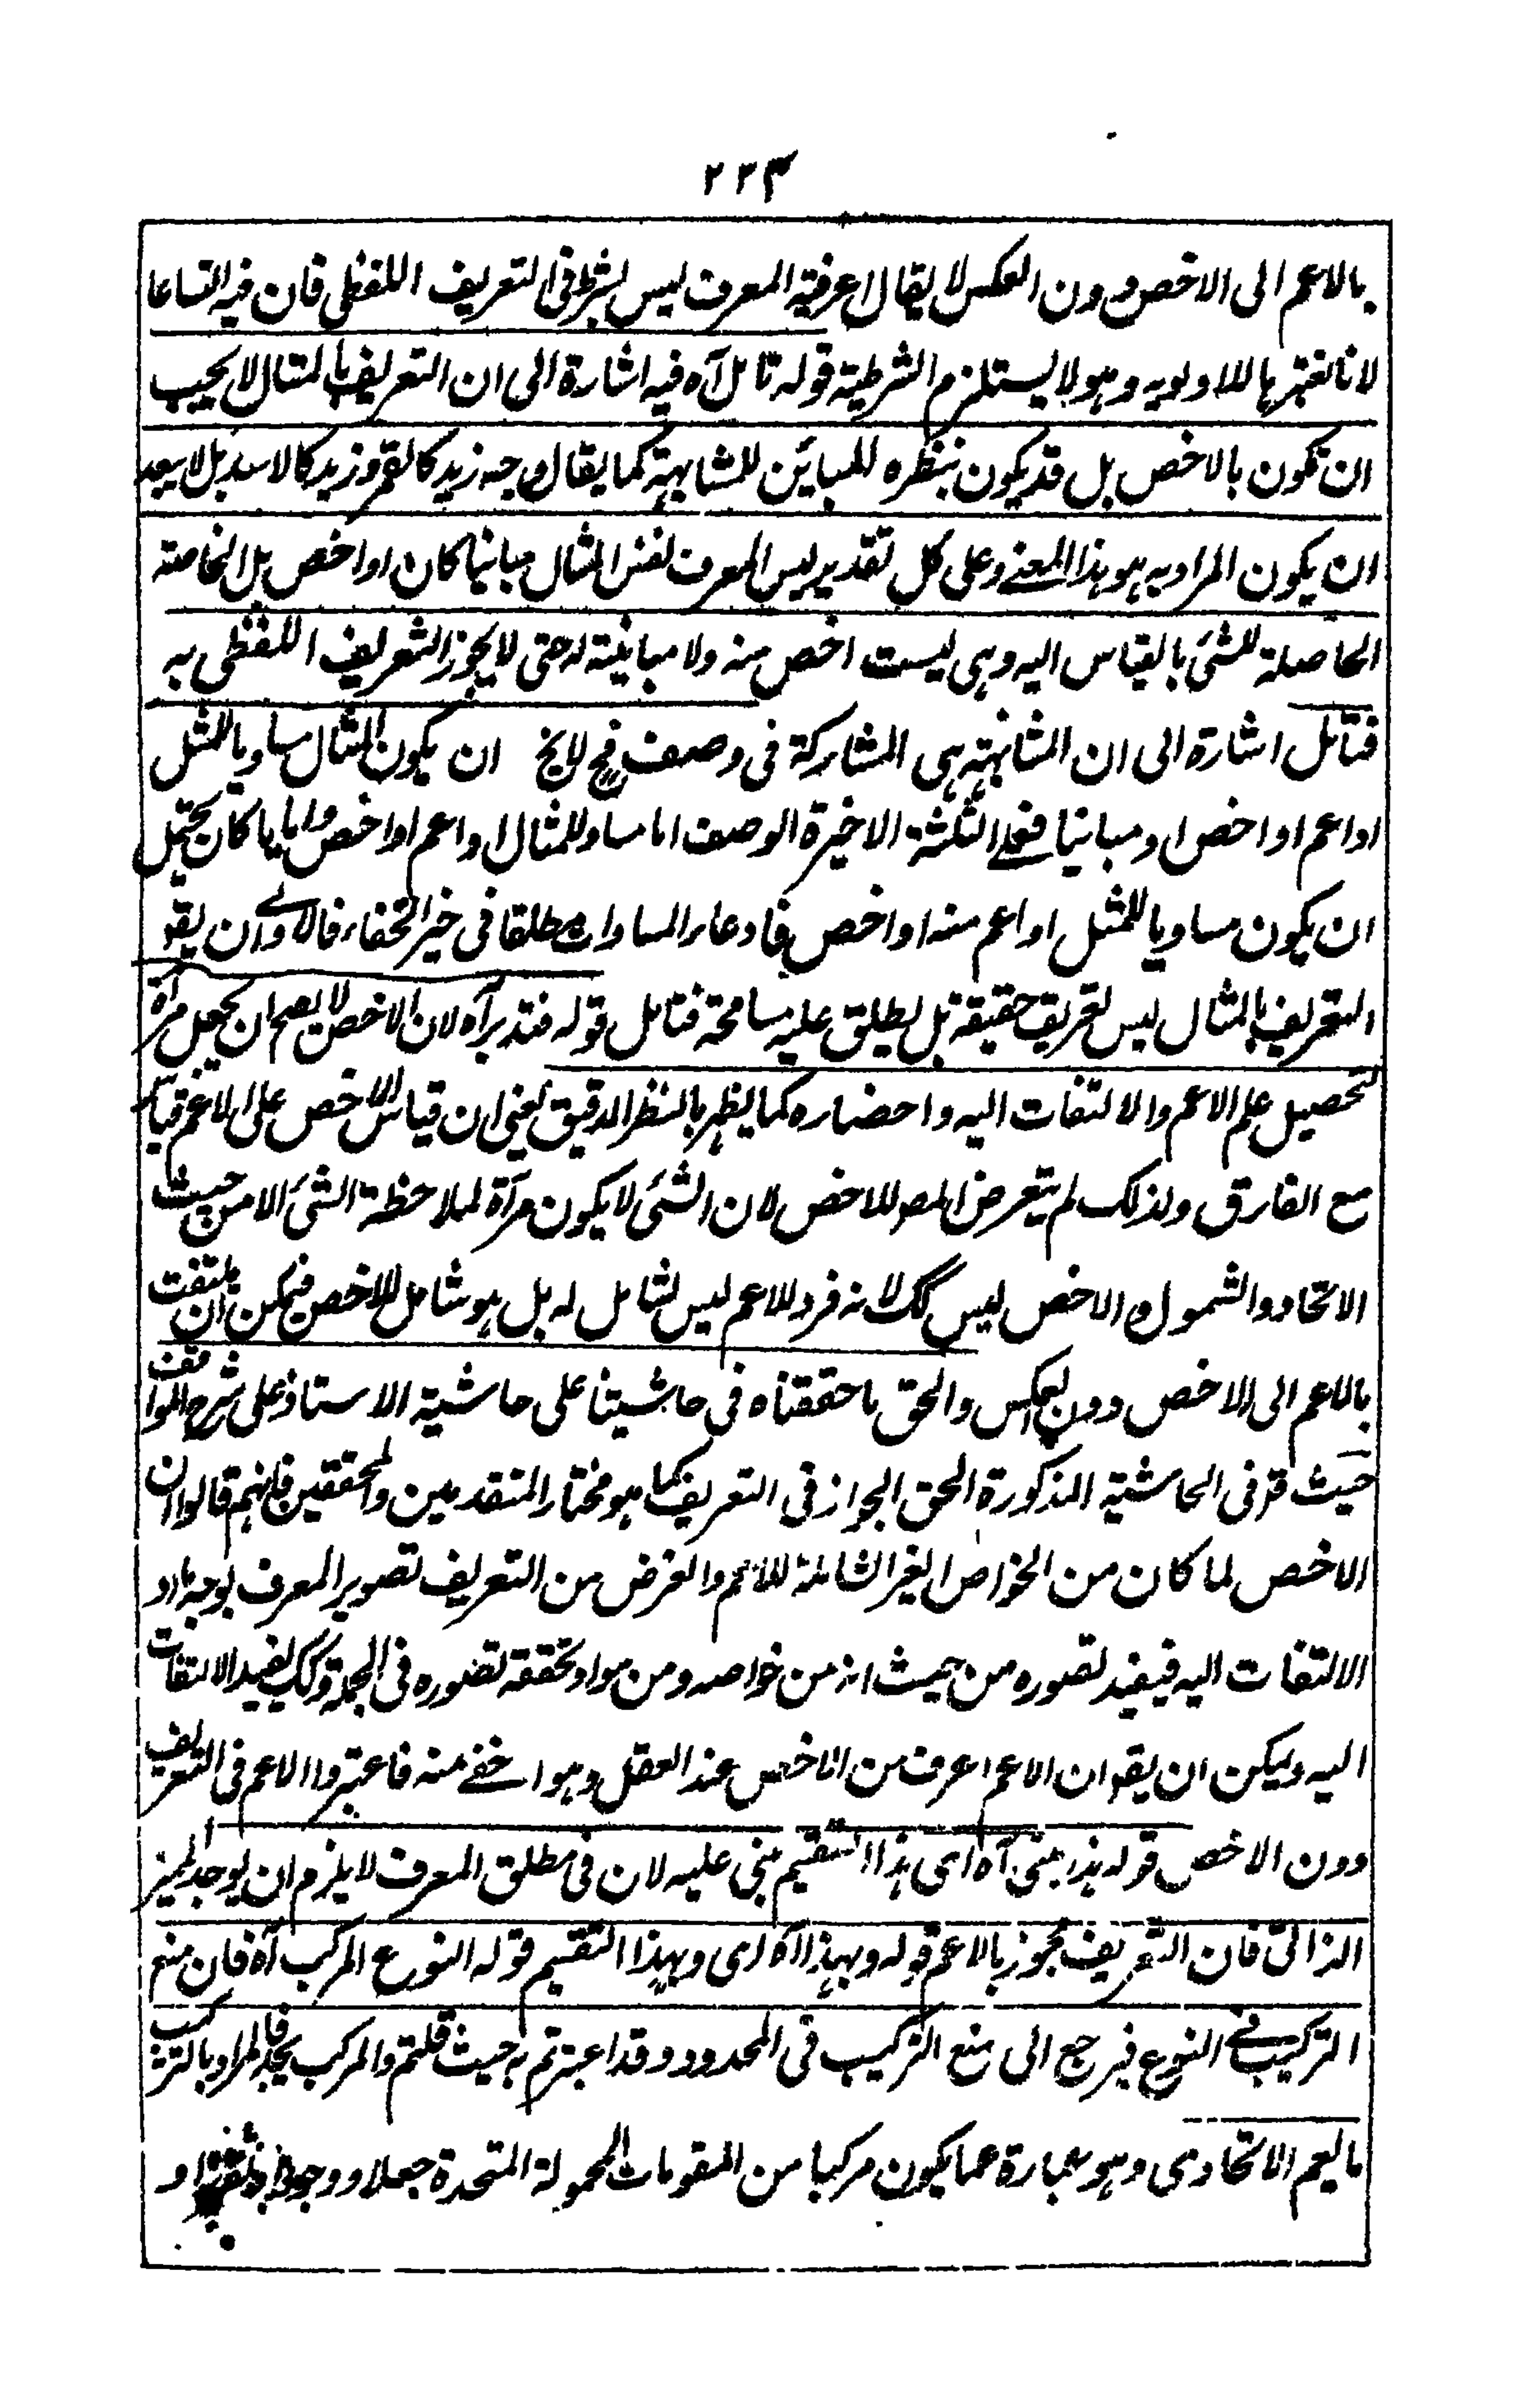 ٢٣٣
بالاعم الى الاخص دون العكس لا يقال اعرفية المعرف ليس بشرط فى التعريف اللفظى فان فيه اتساعا
لانا نعتبرها للاولوية وهو لا يستلزم الشرطية قوله تامل آه فيه اشارة الى ان التعريف بالمثال لا يجب
ان تكون بالاخص بل قد يكون بنظره للمبائن للمشابهة كما يقال وجه زيد كالقمر وزيد كالاسد بل لا يبعد
ان يكون المراد به هو هذا المعنے وعلى كل تقدير ليس المعرف نفس المثال مبائنا كان او اخص بل الخاصة
الحاصلة للشئ بالقياس اليه وهى ليست اخص منه ولا مبائنة له حتى لا يجوز التعريف اللفظى به
فتامل اشارة الى ان المشابهة هى المشاركة فى وصف فح لا يخ ان يكون المثال مساويا للمثل
او اعم او اخص او مبائنا فعلے الثلثة الاخيرة الوصف اما مساو للمثال او اعم او اخص وايا ما كان يحتمل
ان يكون مساويا للمثل او اعم منه او اخص فادعاء المساوات مطلقا فى حيز الخفاء فالاولے ان يقو
التعريف بالمثال ليس تعريف حقيقة بل يطلق عليه مسامحة فتامل قوله فتدبر آه لان الاخص لا يصح ان يجعل مرآة
لتحصيل علم الاعم والالتفات اليه واحضاره كما يظهر بالنظر الدقيق يعنى ان قياس الاخص على الاعم قياس
مع الفارق ولذلك لم يتعرض المص للاخص لان الشئ لا يكون مرآة لملاحظة الشئ الا من حيث
الاتحاد والشمول والاخص ليس كك لانه فرد للاعم ليس لشامل له بل هو شامل للاخص فيمكن ان يلتفت
بالاعم الى الاخص دون العكس والحق ما حققناه فى حاشيتنا على حاشية الاستاذ على شرح المواقف
حيث قر فى الحاشية المذكورة الحق الجواز فى التعريف كما هو مختار المتقدمين والمحققين فانهم قالوا ان
الاخص لما كان من الخواص الغير الشاملة للاعم والغرض من التعريف تصوير المعرف بوجه ما او
الالتفات اليه فيفيد تصوره من حيث انه من خواصه ومن مواد تحققه تصوره فى الجملة وكك يفيد الالتفات
اليه ويمكن ان يقو ان الاعم اعرف من الاخص عند العقل وهو اخفے منه فاعتبروا الاعم فى التعريف
دون الاخص قوله هذا مبنى آه اى هذا التقسيم مبنى عليه لان فى مطلق المعرف لا يلزم ان يوجد المميز
الذاتى فان التعريف يجوز بالاعم قوله وبهذا آه اى وبهذا التقسيم قوله النوع المركب آه فان منع
التركيب فے النوع فيرجع الى منع التركيب فى المحدود وقد اعتبرتم به حيث قلتم والمركب يحد فالمراد بالتركيب
ما يعم الاتحادى وهو عبارة عما يكون مركبا من المقومات المحمولة المتحدة جعلا ووجودا